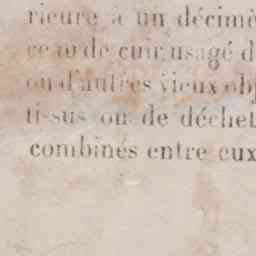 rieure à un décimè
ce ou de cuir usagé d
ou d'autres vieux obj
tissus ou de déchet
combinés entre eux